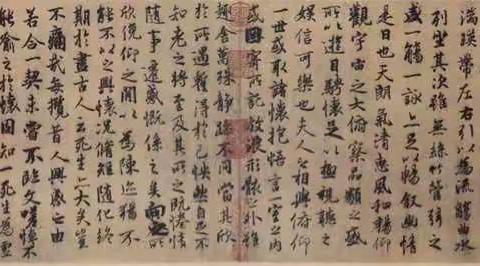 湍暎帶左右引以為流觴曲水
列坐其次雖無絲竹管弦之
盛一觴一詠亦足以暢敘幽情
是日也天朗氣清惠風和暢仰
觀宇宙之大俯察品類之盛
所以遊目騁懷足以極視聽之
娛信可樂也夫人之相與俯仰
一世或取諸懷抱悟言一室之內
或因寄所託放浪形骸之外雖
趣舍萬殊靜躁不同當其欣
於所遇暫得於己怏然自足不
知老之將至及其所之既惓情
隨事遷感慨係之矣向之所
欣俛仰之閒以為陳迹猶不
能不以之興懷況脩短隨化終
期於盡古人云死生亦大矣豈
不痛哉每攬昔人興感之由
若合一契未嘗不臨文嗟悼不
能喻之於懷固知一死生為虛